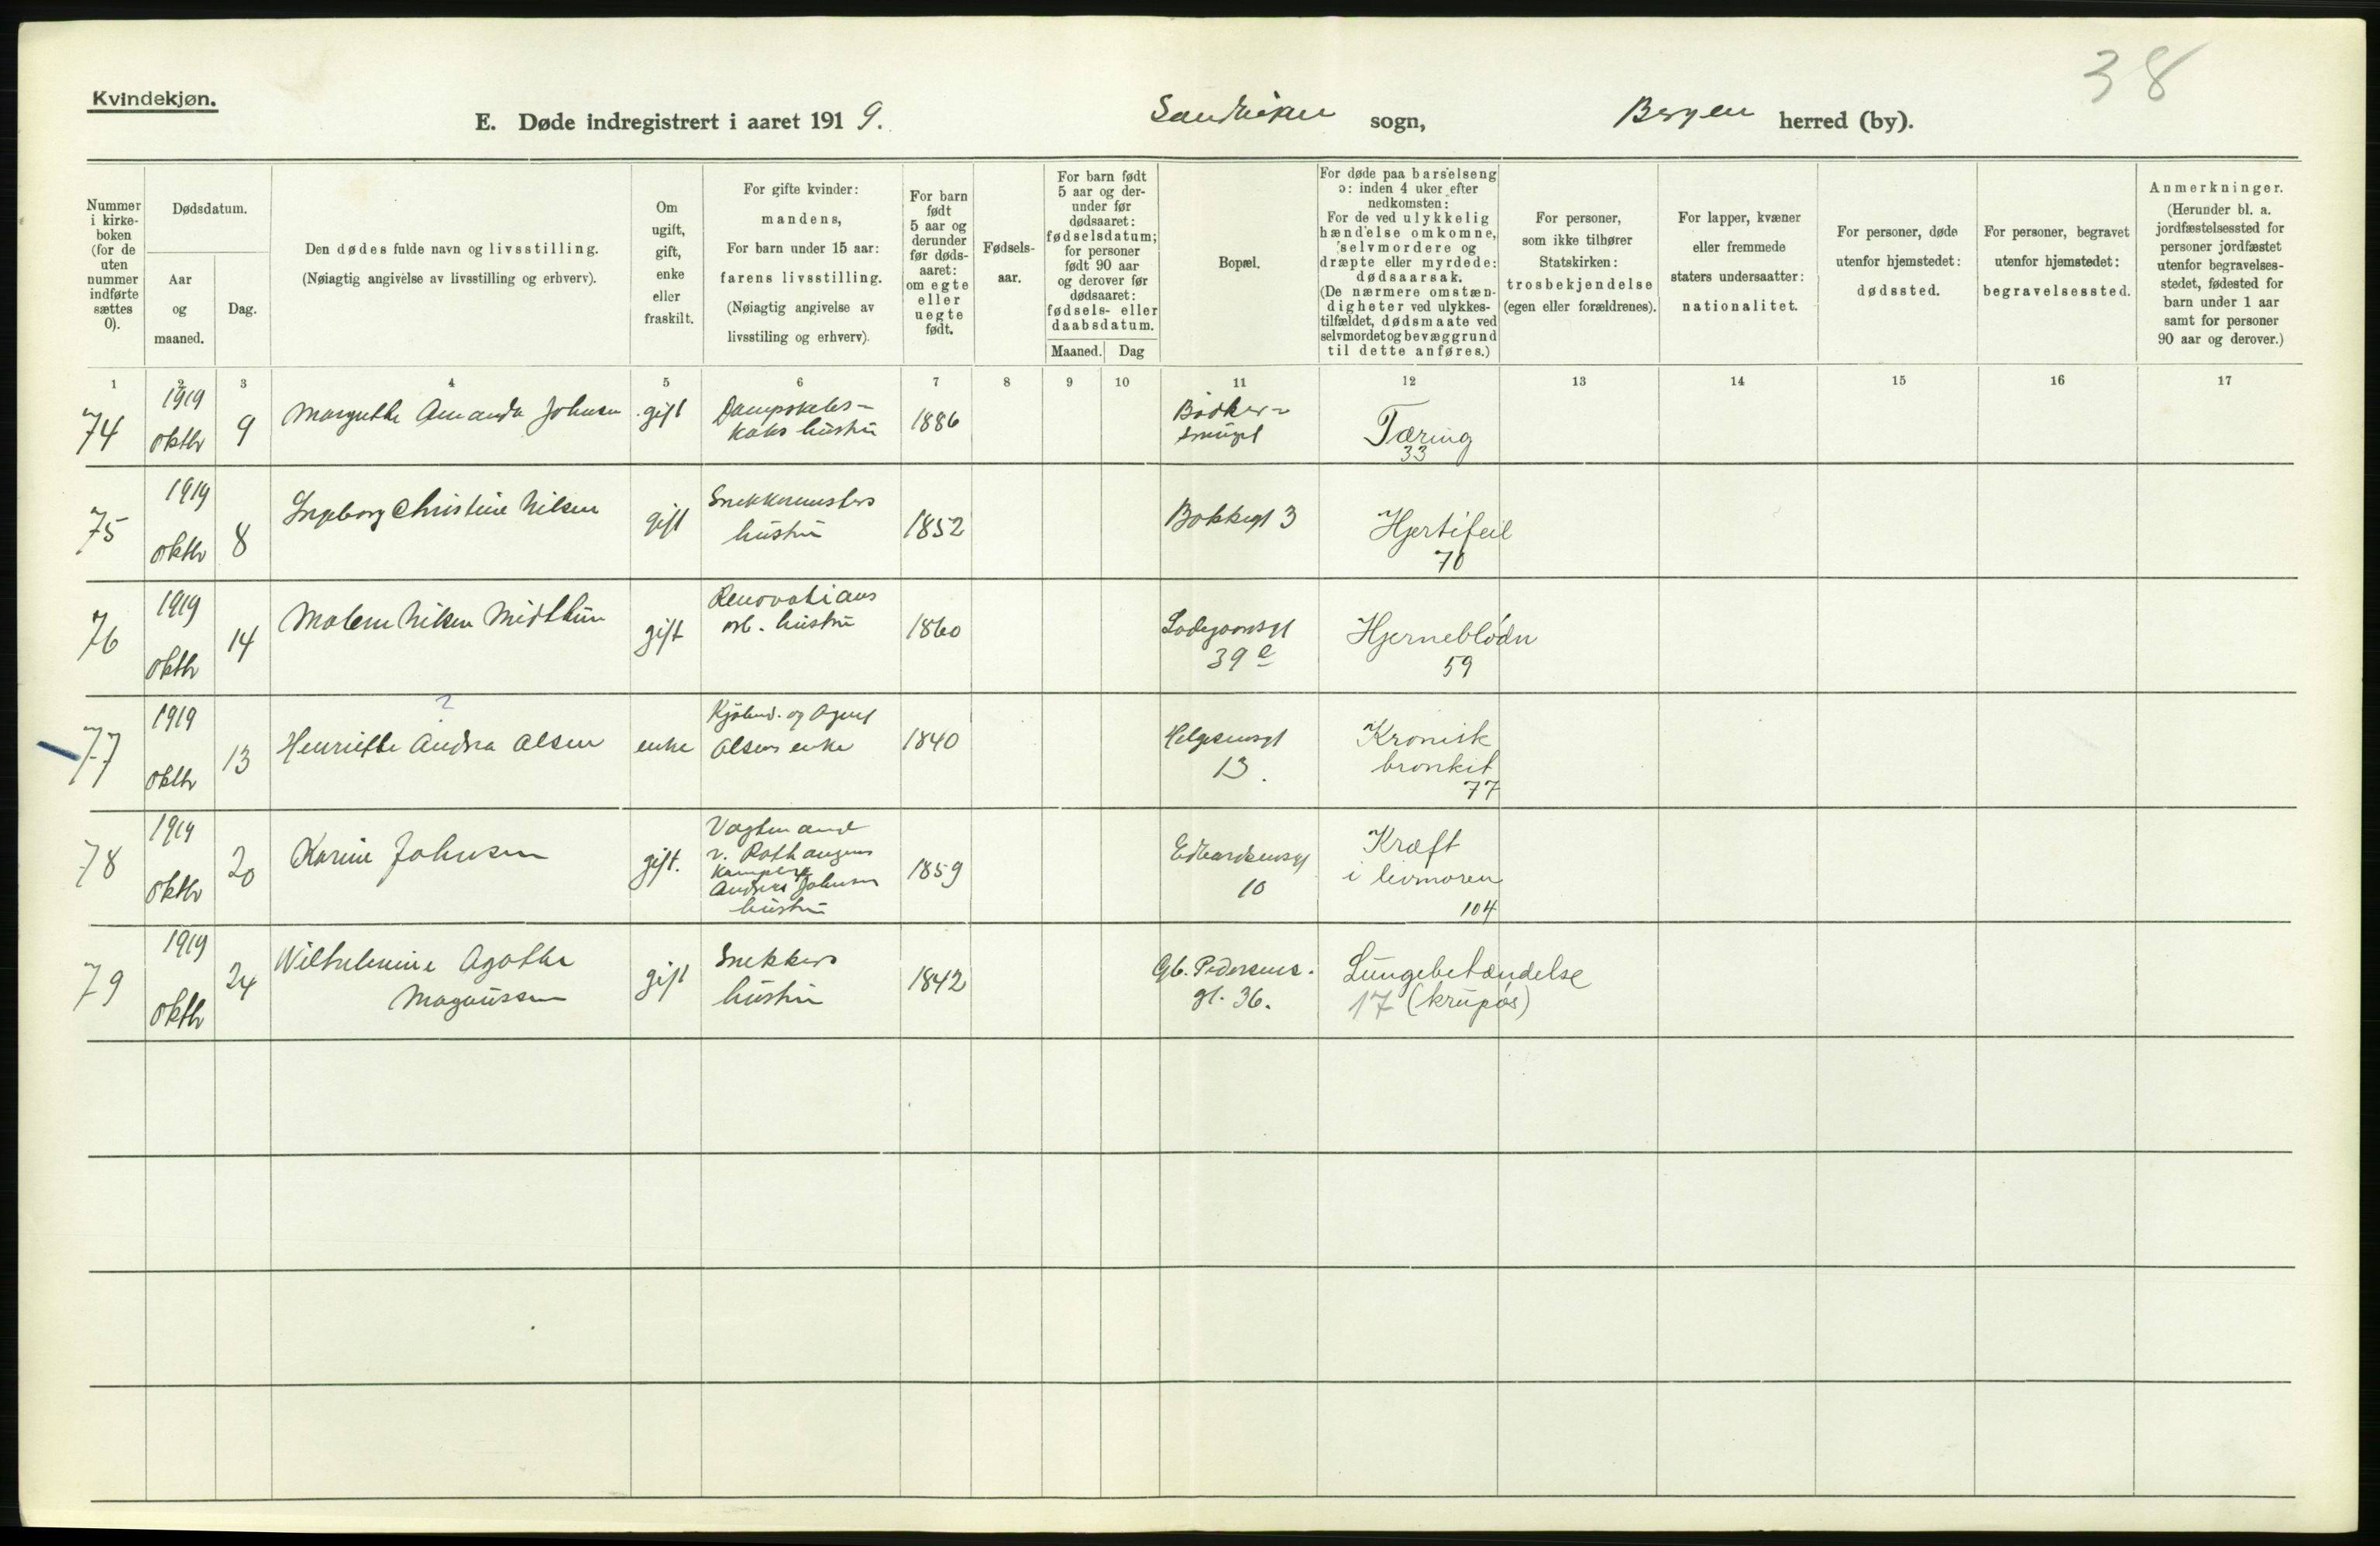 38
Kvindekjøn.
E. Døde indregistrert i aaret 1919. Sandviken sogn, Bergen herred (by).
Nummer i kirke- boken (for de uten nummer indførte sættes 0).
Dødsdatum.
Aar og maaned.
Dag.
Den dødes fulde navn og livsstilling.
(Nøiagtig angivelse av livsstilling og erhverv).
Om ugift, gift, enke eller fraskilt.
For gifte kvinder: mandens,
For barn under 15 aar: farens livsstilling.
(Nøiagtig angivelse av livsstiling og erhverv).
For barn født 5 aar og derunder før døds- aaret: om egte eller uegte født.
Fødsels- aar.
For barn født 5 aar og der- under før dødsaaret: fødselsdatum; for personer født 90 aar og derover før dødsaaret: fødsels- eller daabsdatum.
Maaned. Dag
Bopæl.
For døde paa barselseng ɔ: inden 4 uker efter nedkomsten:
For de ved ulykkelig hændelse omkomne, selvmordere og dræpte eller myrdede: dødsaarsak.
(De nærmere omstæn- digheter ved ulykkes- tilfældet, dødsmaate ved selvmordet og bevæggrund til dette anføres.)
For personer, som ikke tilhører Statskirken: trosbekjendelse (egen eller forældrenes).
For lapper, kvæner eller fremmede staters undersaatter: nationalitet.
For personer, døde utenfor hjemstedet: dødssted.
For personer, begravet utenfor hjemstedet: begravelsessted.
Anmerkninger.
(Herunder bl. a. jordfæstelsessted for personer jordfæstet utenfor begravelses- stedet, fødested for barn under 1 aar samt for personer 90 aar og derover.)
1 2 3 4 5 6 7 8 9 10 11 12 13 14 15 16 17
74 1919 oktbr 9 Margrethe Amanda Johnsen gift Dampskibs- koks hustru 1886 Bødker- smuget Tæring 33
75 1919 oktbr 8 Ingeborg Christine Nilsen gift Snekkermesters hustru 1852 Bakkegt 3 Hjertefeil 70
76 1919 oktbr 14 Malene Nilsen Midttun gift Renovations arb. hustru 1860 Ladegaardsgt 39 Hjerneblødn 59
77 1919 oktbr 13 Henriette Andrea Olsen enke Kjøbmd. og Agent Olsens enke 1840 Helgesensgt 13. Kronisk bronkit 77
78 1919 oktbr 20 Karine Johnsen gift. Vagtmand v. Anders Johnsen hustru 1859 Edvardsensgt 10 Kræft i livmoren 104
79 1919 oktbr 24 Wilhelmine Agathe Magnussen gift Snekkers hustru 1842 Gb. Pedersens. gt. 36. Lungebetændelse 17 (krupøs)